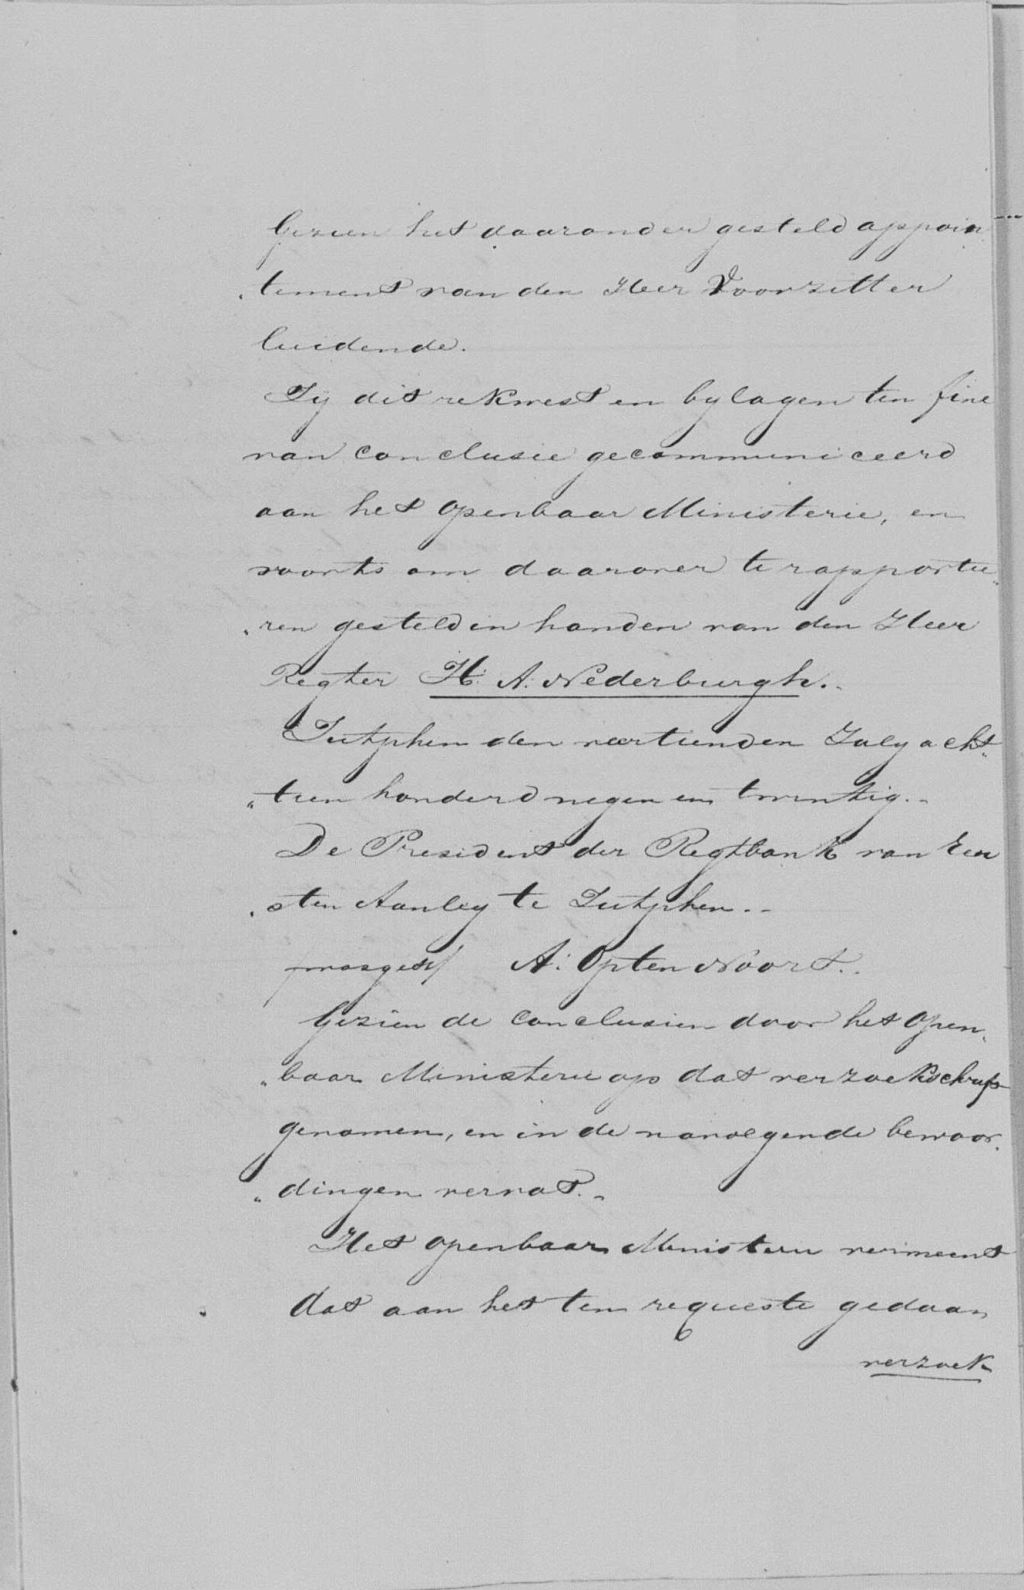 Gezien het daaronder gesteld appoin
„tement van den Heer Voorzitter
luidende.
Zij dit rekwest en bylagen ten fine
van conclusie gecommuniceerd
aan het openbaar Ministerie, en
voorts om daarover te rapportee„
„ren gesteld in handen van den Heer
Regter H: A: Nederburgh.-
Zutphen den veertienden July acht„
„tien honderd negen en twintig.-
De President der Regtbank van Eer
„sten Aanleg te Zutphen.-
/was get/ A: Opten Noort.-
Gezien de conclusien door het Open„
„baar Ministerie op dat verzoekschrift
genomen, en in de navolgende bewoor„
„dingen vervat.-
Het openbaar Ministerie vermeent
dat aan het ten requeste gedaan
verzoek